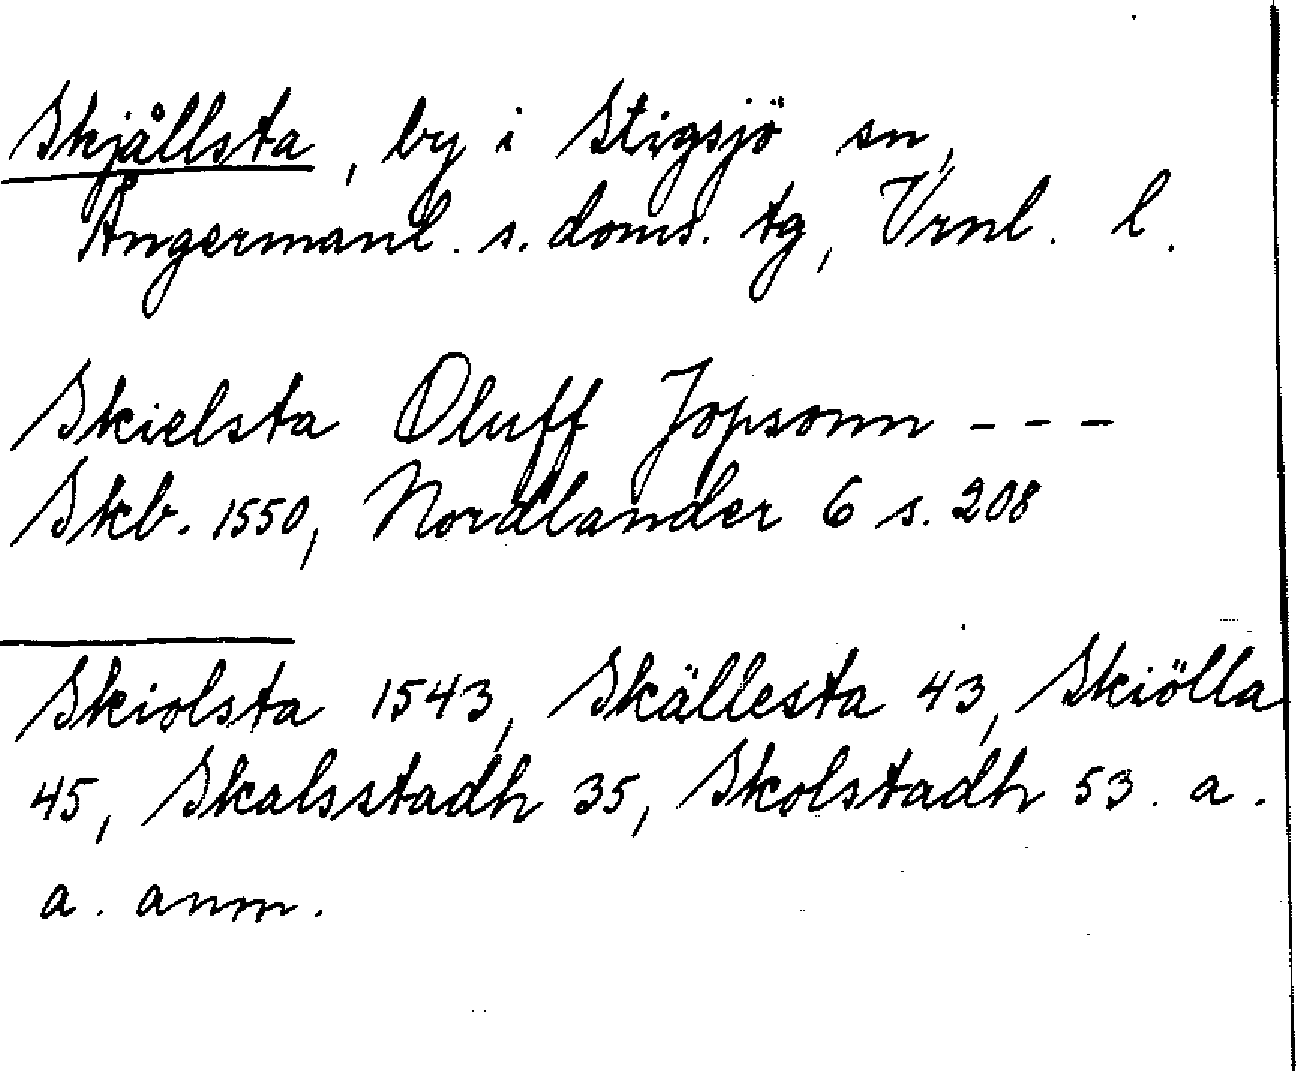 Skjållsta, by i Stigsjö sn,
Ångermanl. s. doms. tg, Vrnl. l.
Skielsta Oluff Jopsonn - - -
Skb. 1550, Nordlander 6 s. 208
Skiolsta 1543, Skällesta 43, Skiölla
45, Skalsstadh 35, Skolstadh 53. a.
a. anm.